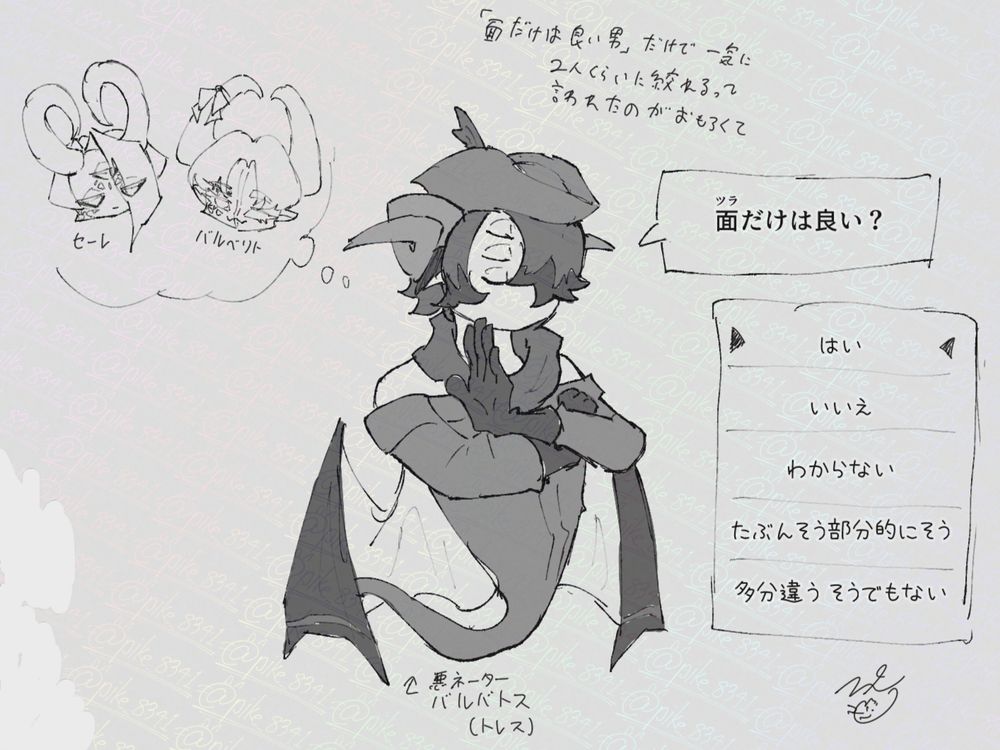 「面だけは良い男」だけで一気に
2人くらいに絞れるって
言われたのがおもろくて
セーレ
バルベリト
ツラ
面だけは良い？
はい
いいえ
わからない
たぶんそう部分的にそう
多分違う そうでもない
↑ 悪ネーター
バルバトス
(トレス)
@pike8341